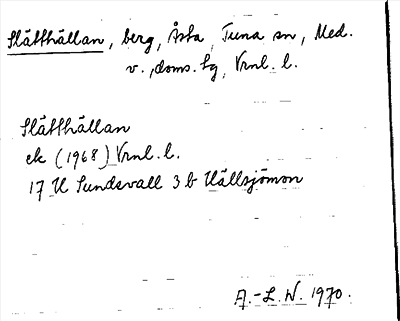 Slätthällan, berg, Åsta, Tuna sn, Med.
v., doms. hg, Vrnl. l.
Slätthällan
ek (1968) Vrnl. l.
17 H Sundsvall 3 b Hällsjömon
A.-L. W. 1970.